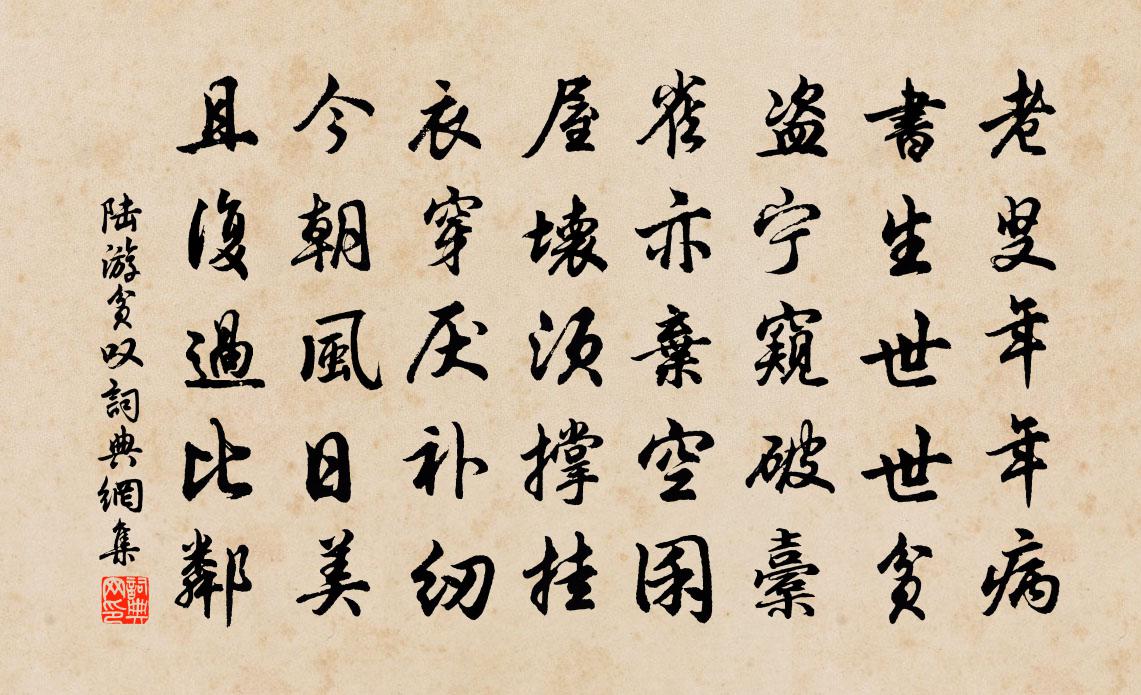 老叟年年病
書生世世貧
盗宁窺破橐
雀亦棄空囷
屋壞須撐挂
衣穿厌补紉
今朝風日美
且復過比鄰
陆游貧叹詞典網集
詞典網印